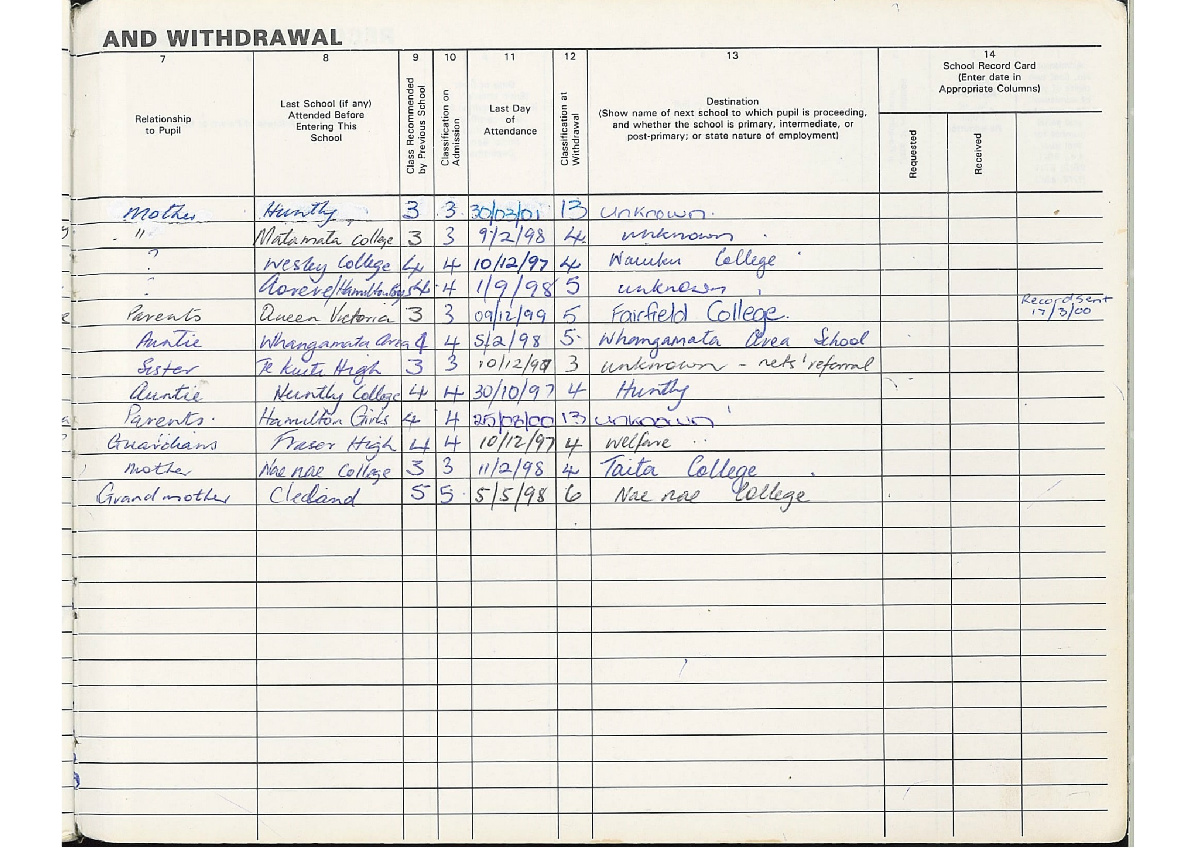 AND WITHDRAWAL
7 8 9 10 11 12 13 14
Relationship to Pupil
Last School (if any) Attended Before Entering This School
Class Recommended by Previous School
Classification on Admission
Last Day of Attendance
Classification at Withdrawal
Destination
(Show name of next school to which pupil is proceeding, and whether the school is primary, intermediate, or post-primary; or state nature of employment)
School Record Card
(Enter date in Appropriate Columns)
Requested
Received
Mother Huntly 3 3 30/03/01 13 unknown.
" Matamata College 3 3 9/2/98 4 unknown
? Wesley College 4 4 10/12/97 4 Waiuku College
Hamilton Boys 4 4 1/9/98 5 unknown
Parents Queen Victoria 3 3 09/12/99 5 Fairfield College. Record sent 17/3/00
Auntie Whangamata Area 4 4 5/2/98 5 Whangamata Area School
Sister Te Kuiti High 3 3 10/12/97 3 unknown - nets' referral
Auntie Huntly College 4 4 30/10/97 4 Huntly
Parents. Hamilton Girls 4 4 25/08/00 13 unknown
Guardians Fraser High 4 4 10/12/97 4 welfare
Mother Nae nae College 3 3 11/2/98 4 Taita College
Grandmother Cleeland 5 5 5/5/98 6 Nae nae College